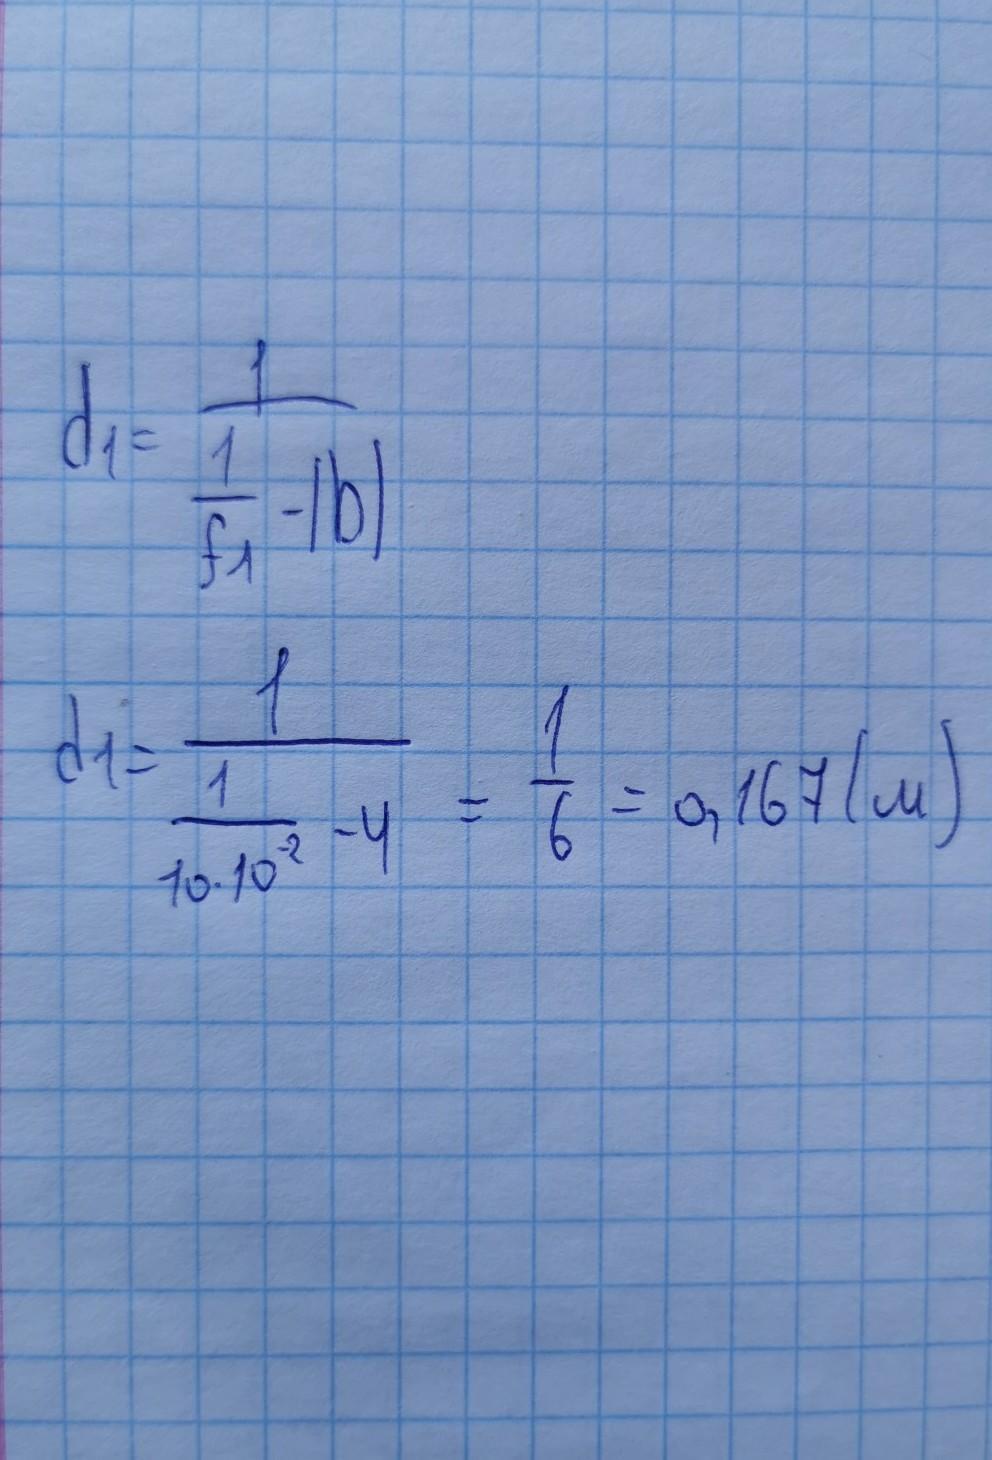 d₁ = 1 / (1/f₁ - |b|)
d₁ = 1 / (1/(10·10⁻²) - 4) = 1/6 = 0,167 (м)